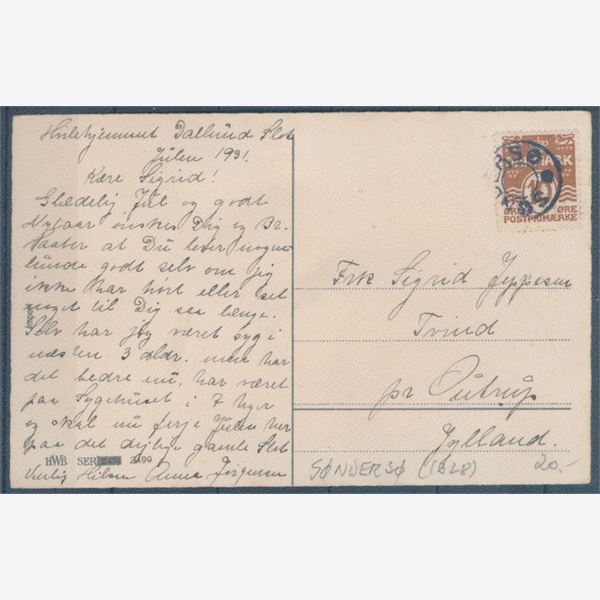 Hvilehjemmet Dallund Slot
Julen 1931.
Kære Sigrid!
Glædelig Jul og godt
Nytaar ønskes Dig og Br.
Haaber at Du lever nogen-
lunde godt selv om jeg
ikke har hørt eller set
noget til Dig saa længe.
Selv har jeg været syg i
næsten 3 men har
det bedre nu, har været
paa Sygehuset i 7
og skal nu fejre Julen her
paa det dejlige gamle Slot
Venlig Hilsen Anna Jørgensen
Import
HWB SER 3499
10
ØRE ØRE
POSTFRIMÆRKE
Frk Sigrid Jeppesen
Tvind
pr Outrup
Jylland.
SØNDERSØ (1628) 20,-